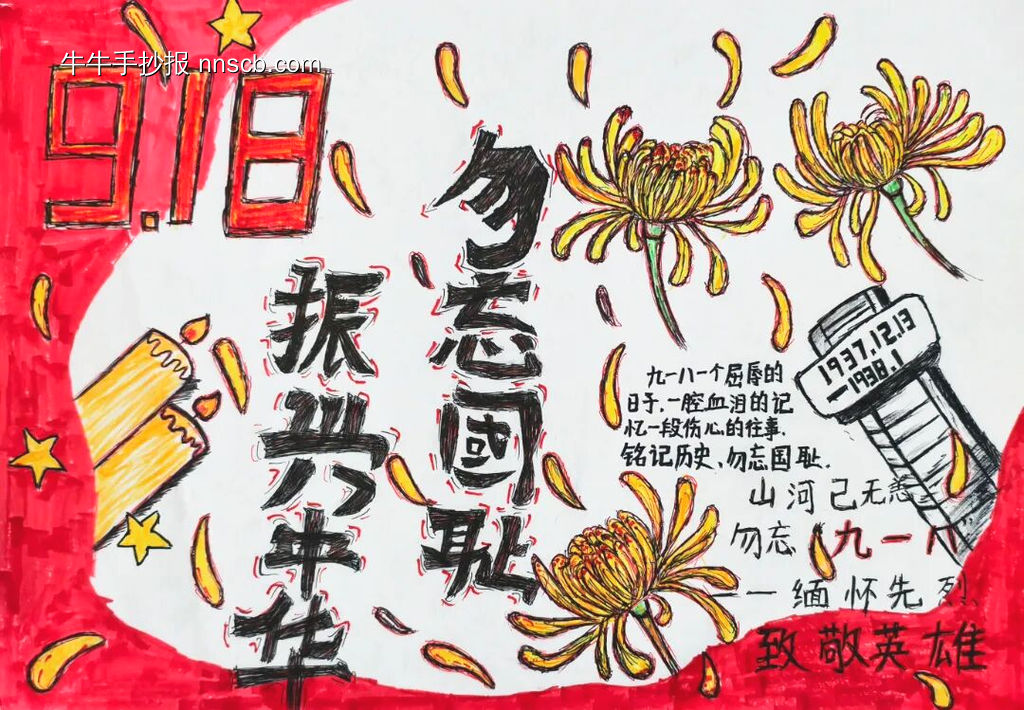 牛牛手抄报 nnscb.com
9.18
勿忘國耻
振兴中华
1937.12.13
—1938.1
九一八一个屈辱的
日子.一腔血泪的记
忆一段伤心的往事.
铭记历史、勿忘国耻.
山河已无恙
勿忘“九一八”
——缅怀先烈
致敬英雄